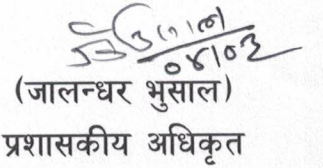 ०४।०३
(जालन्धर भुसाल)
प्रशासकीय अधिकृत